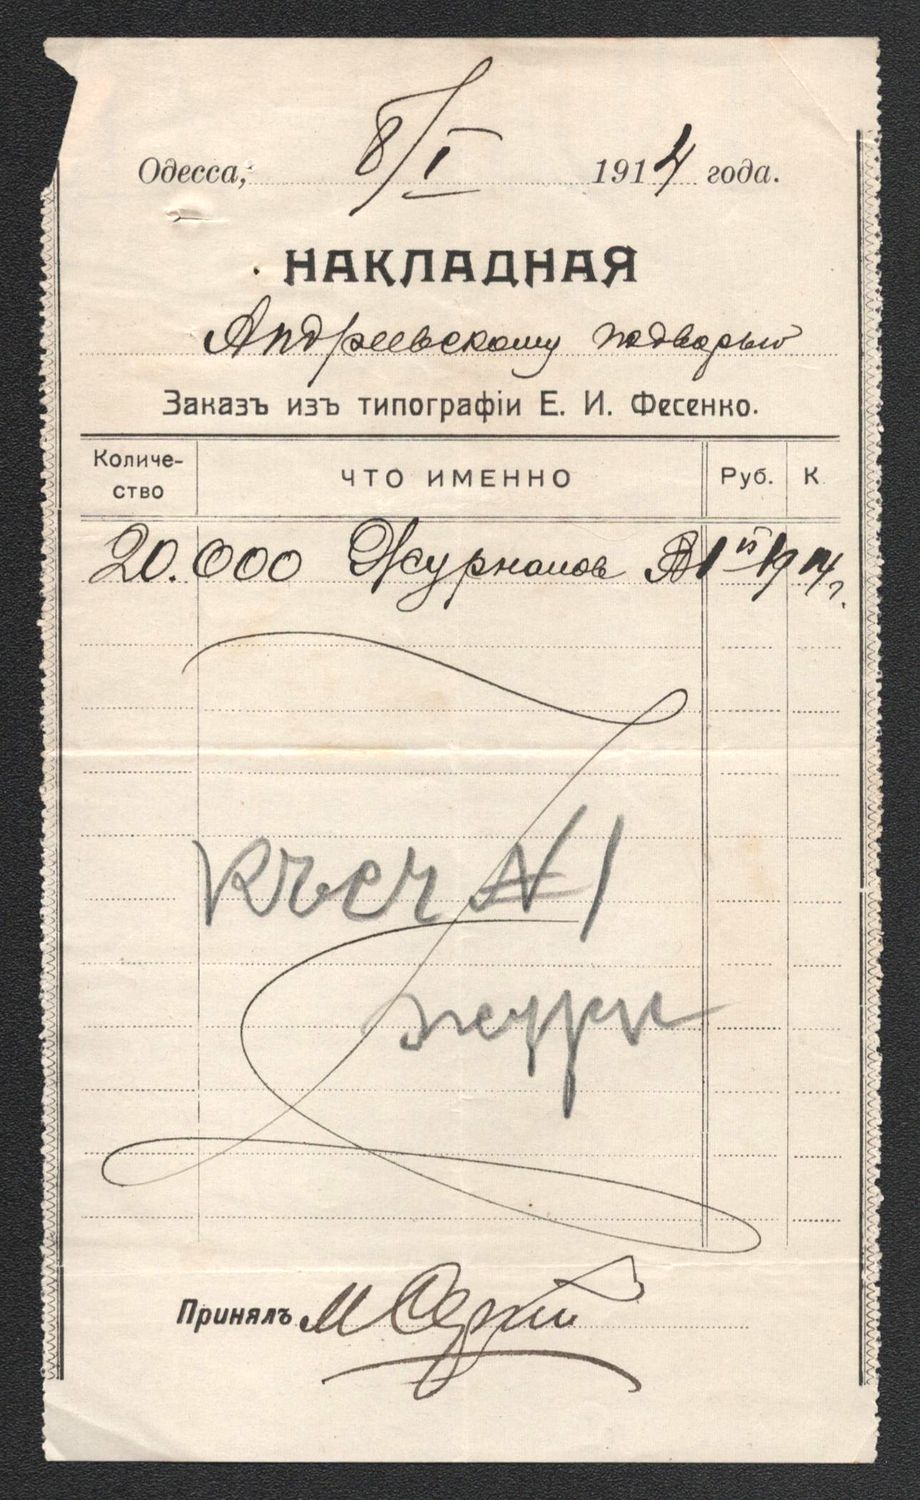 Одесса, 8/I 1914 года.
НАКЛАДНАЯ
Андреевскому подворью
Заказъ изъ типографіи Е. И. Фесенко.
Количе-
ство
ЧТО ИМЕННО
Руб.
К.
20.000 Журналов № 1й 1914 г.
№ 1
журн
Принялъ М